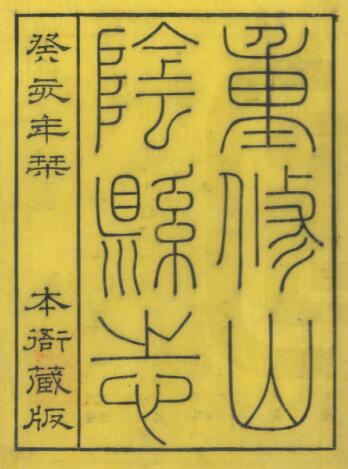 重修山
陰縣志
癸亥年栞
本衙藏版